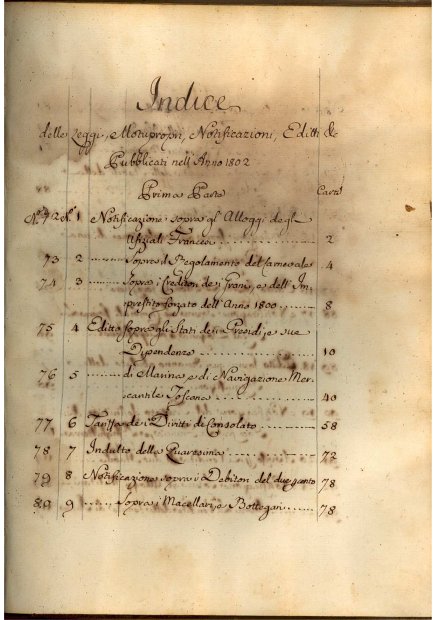 Indice
delle Leggi, Motuproprj, Notificazioni, Editti &c
Pubblicati nell'Anno 1802
Prima Parte Carte
N.° 72 N.° 1 Notificazione sopra gl'Alloggi degl'
Ufiziali Francesi 2
73 2 Sopra il Regolamento del Carnevale 4
74 3 Sopra i Creditori dei Grani, e dell'Im-
prestito forzato dell'Anno 1800 8
75 4 Editto sopra gli Stati dei Presidj, e sue
Dipendenze 10
76 5 di Marina e di Navigazione Mer-
cantile Toscana 40
77 6 Tariffa dei Diritti di Consolato 58
78 7 Indulto della Quaresima 72
79 8 Notificazione sopra i Debitori del due 78
80 9 Sopra i Macellari, e Bottegari 78